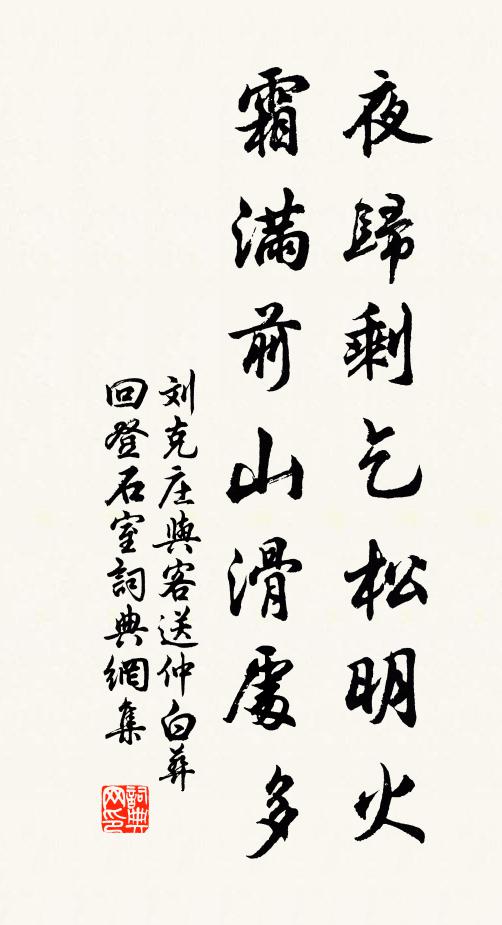 夜歸剩乞松明火
霜滿前山滑處多
刘克庄與客送仲白葬
回登石室詞典網集
詞典
网印